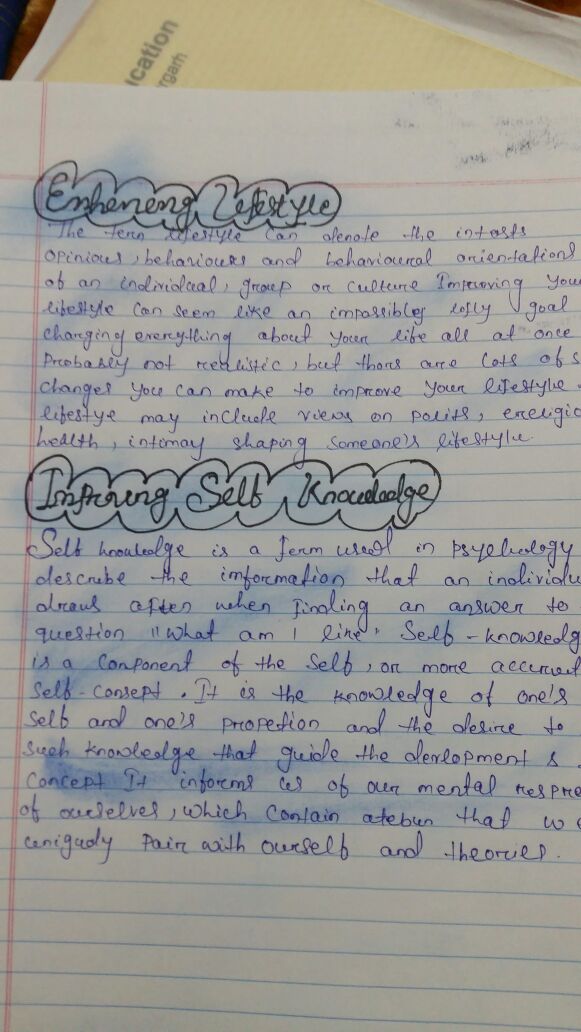 ication
rgarh
Enheneng Lifestyle
The term lifestyle can denote the intrests
opinious, behaviours and behavioural orientations
of an individual, group or culture Improving your
lifestyle can seem like an impossibles lofly goal
changing everything about your life all at once
Probabely not realistic, but thors are lots of s
changes you can make to improve your lifestyle
lifestye may include views on polits, ereligio
health, intimay shaping someone's lifestyle.
Self Knowledge
Self knowledge is a term used in psychology
describe the information that an individu
draws often when finding an answer to
question "what am I like" Self-knowledg
is a component of the self, or more accurat
self-consept. It is the knowledge of one's
self and one's propetion and the desire to
such knowledge that guide the derlopment s
concept It informs us of our mental respre
of ourselves, which contain atebun that w
cenigudy pair with ourself and theories.